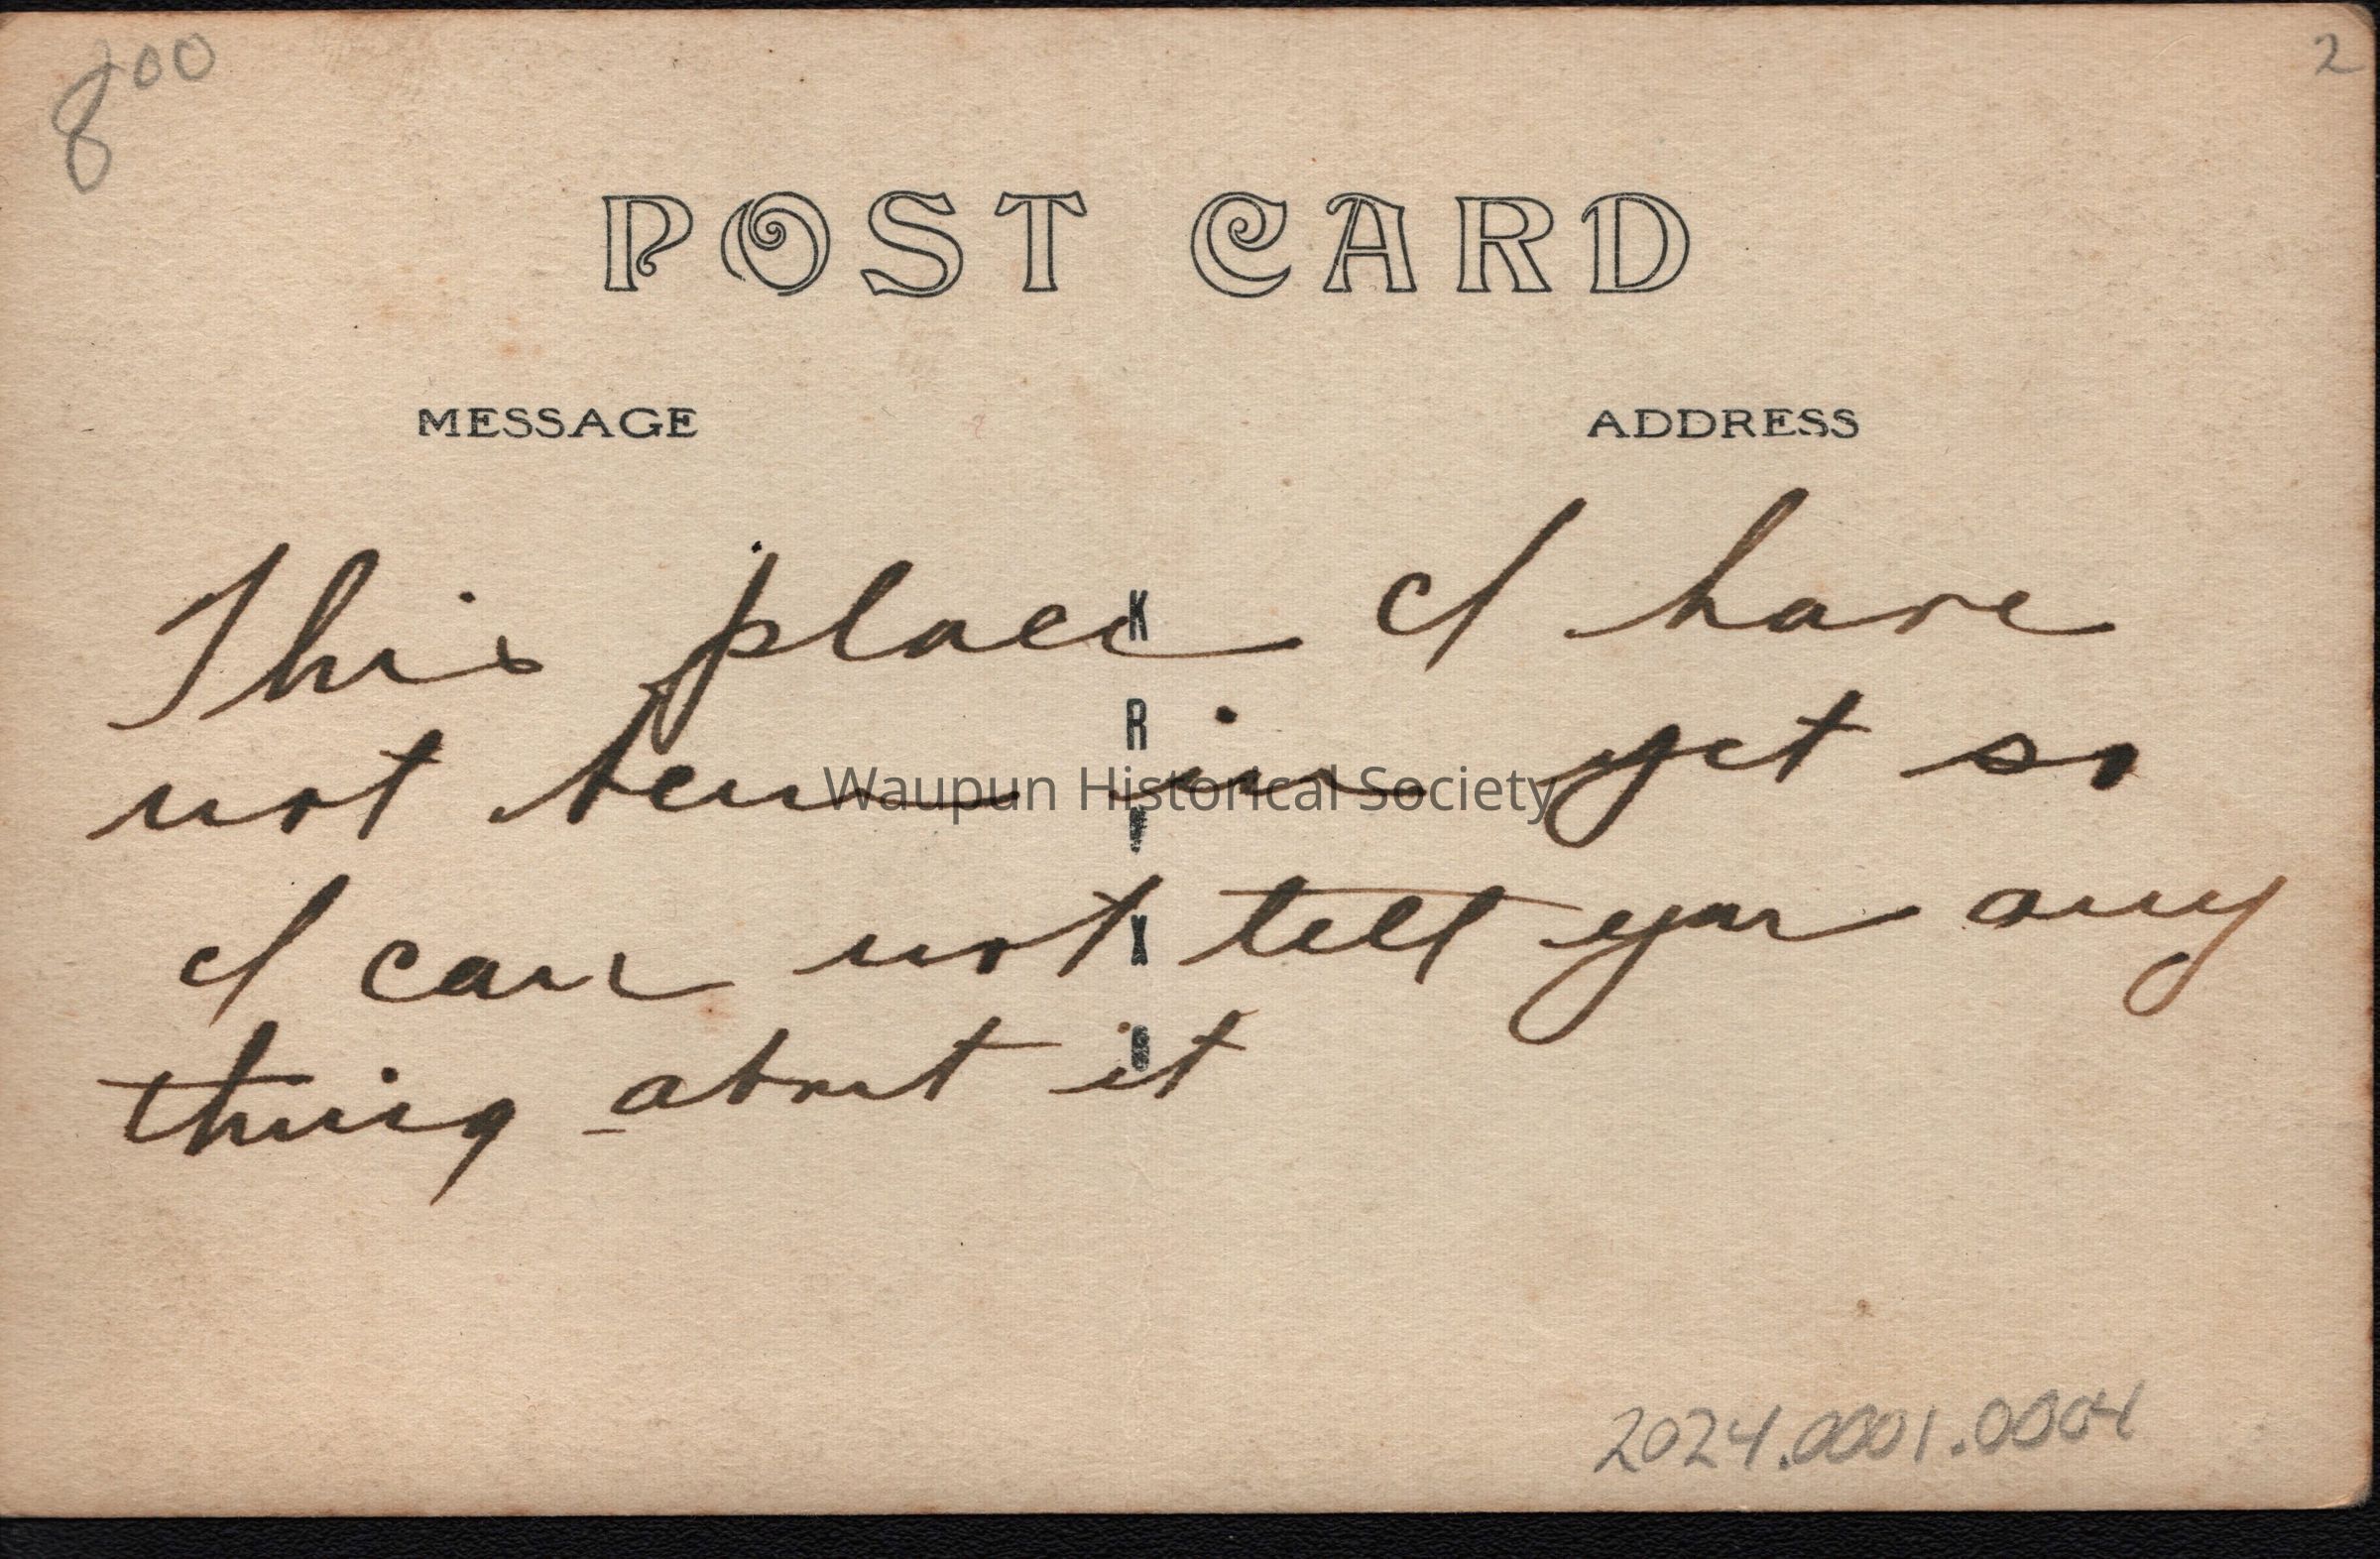 8 00
2
POST CARD
MESSAGE
ADDRESS
This place I have
not been in yet so
I can not tell you any
thing about it
K
R
X
Waupun Historical Society
2024.0001.0004